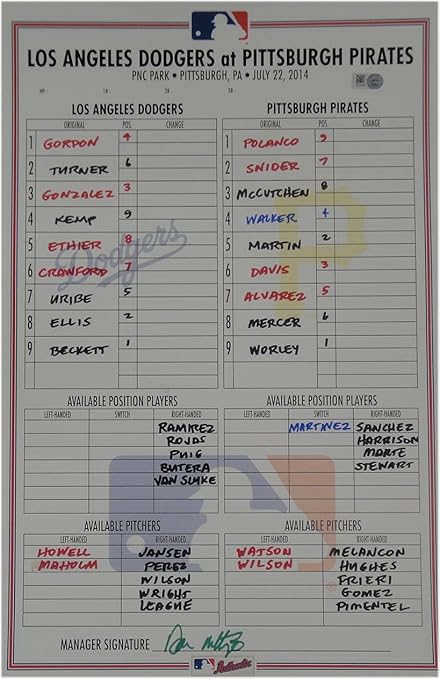 LOS ANGELES DODGERS at PITTSBURGH PIRATES
PNC PARK • PITTSBURGH, PA • JULY 22, 2014
HP - 1B - 2B - 3B -
LOS ANGELES DODGERS
ORIGINAL POS. CHANGE
1 GORDON 4
2 TURNER 6
3 GONZALEZ 3
4 KEMP 9
5 ETHIER 8
6 CRAWFORD 7
7 URIBE 5
8 ELLIS 2
9 BECKETT 1
Dodgers
PITTSBURGH PIRATES
ORIGINAL POS. CHANGE
1 POLANCO 9
2 SNIDER 7
3 McCUTCHEN 8
4 WALKER 4
5 MARTIN 2
6 DAVIS 3
7 ALVAREZ 5
8 MERCER 6
9 WORLEY 1
P
AVAILABLE POSITION PLAYERS
LEFT-HANDED SWITCH RIGHT-HANDED
RAMIREZ
ROJAS
PUIG
BUTERA
VAN SLYKE
AVAILABLE POSITION PLAYERS
LEFT-HANDED SWITCH RIGHT-HANDED
MARTINEZ SANCHEZ
HARRISON
MARTE
STEWART
AVAILABLE PITCHERS
LEFT-HANDED RIGHT-HANDED
HOWELL JANSEN
MAHOLM PEREZ
WILSON
WRIGHT
LEAGUE
AVAILABLE PITCHERS
LEFT-HANDED RIGHT-HANDED
WATSON MELANCON
WILSON HUGHES
FRIERI
GOMEZ
PIMENTEL
MANAGER SIGNATURE
Authentic